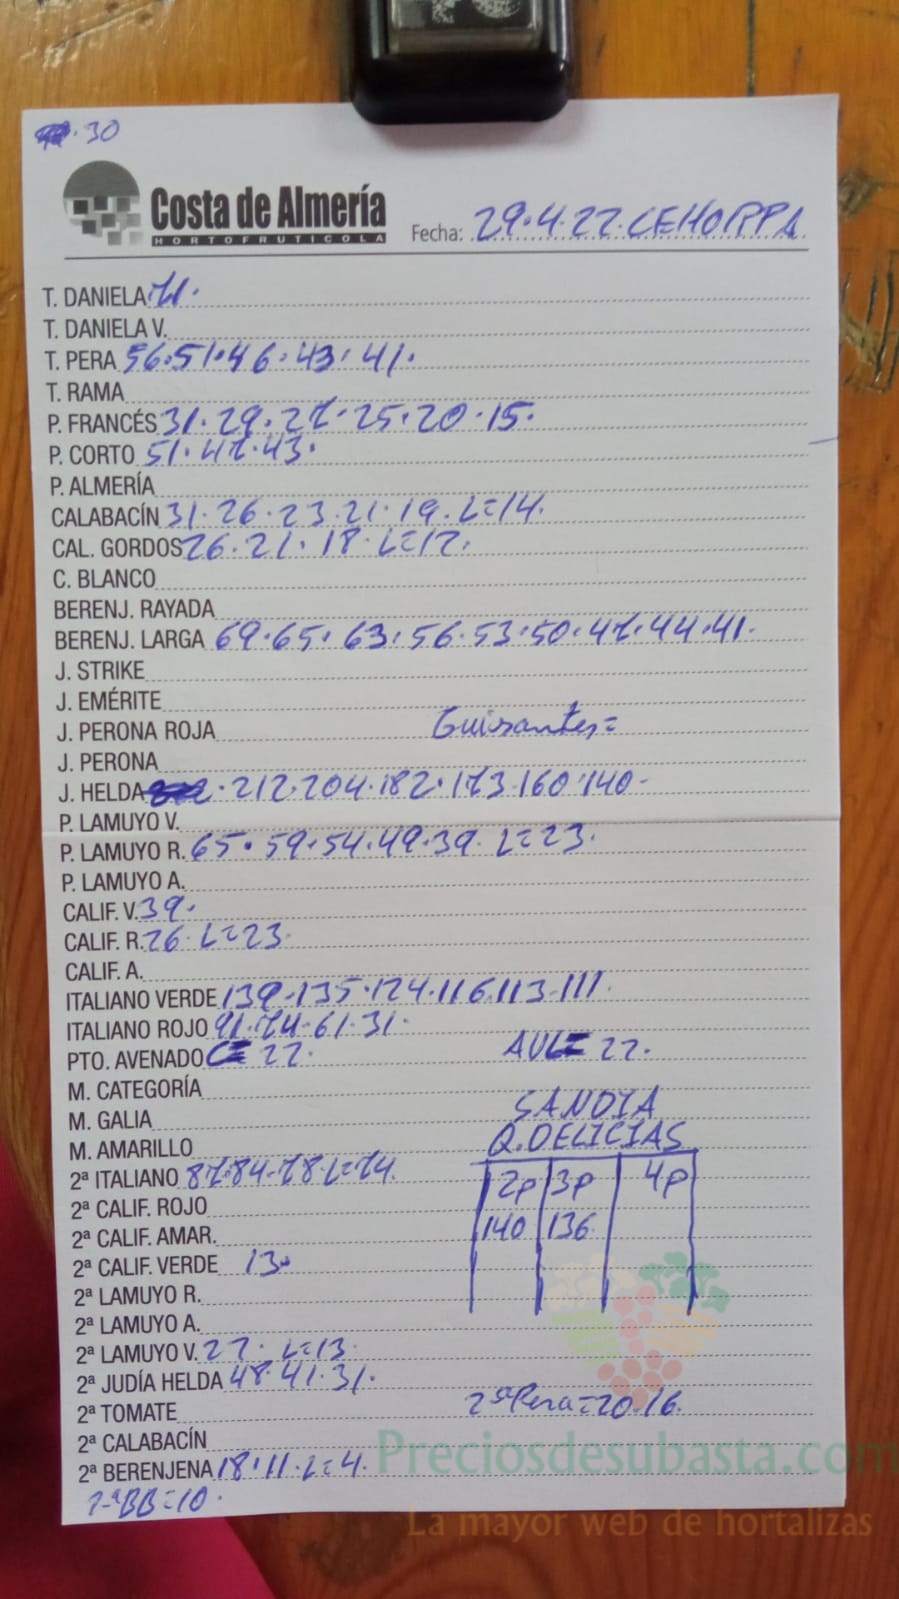 30
Costa de Almería
HORTOFRUTICOLA
Fecha: 29.4.22.CEHORPA
T. DANIELA 71.
T. DANIELA V.
T. PERA 56.51.46.43.41.
T. RAMA
P. FRANCÉS 31.29.27.25.20.15.
P. CORTO 51.47.43.
P. ALMERÍA
CALABACÍN 31.26.23.21.19.L=14.
CAL. GORDOS 26.21.18.L=12.
C. BLANCO
BERENJ. RAYADA
BERENJ. LARGA 69.65.63.56.53.50.47.44.41.
J. STRIKE
J. EMÉRITE
J. PERONA ROJA Guisantes=
J. PERONA
J. HELDA .212.204.182.173.160.140-
P. LAMUYO V.
P. LAMUYO R. 65.59.54.49.39.L=23.
P. LAMUYO A.
CALIF. V. 39.
CALIF. R. 26.L=23
CALIF. A.
ITALIANO VERDE 139-135.124.116.113-111.
ITALIANO ROJO 91.74-61.31.
PTO. AVENADO 22. 22.
M. CATEGORÍA
M. GALIA SANDIA
M. AMARILLO Q.DELICIAS
2ª ITALIANO 87.84-78L=74. 2P 3P 4P
2ª CALIF. ROJO
2ª CALIF. AMAR. 140 136
2ª CALIF. VERDE 13.
2ª LAMUYO R.
2ª LAMUYO A.
2ª LAMUYO V. 27. L=13.
2ª JUDÍA HELDA 48.41.31.
2ª TOMATE 2ªPera=20.16.
2ª CALABACÍN
Preciosdesubasta.com
2ª BERENJENA 18.11.L=4.
2ªBB=10.
La mayor web de hortalizas